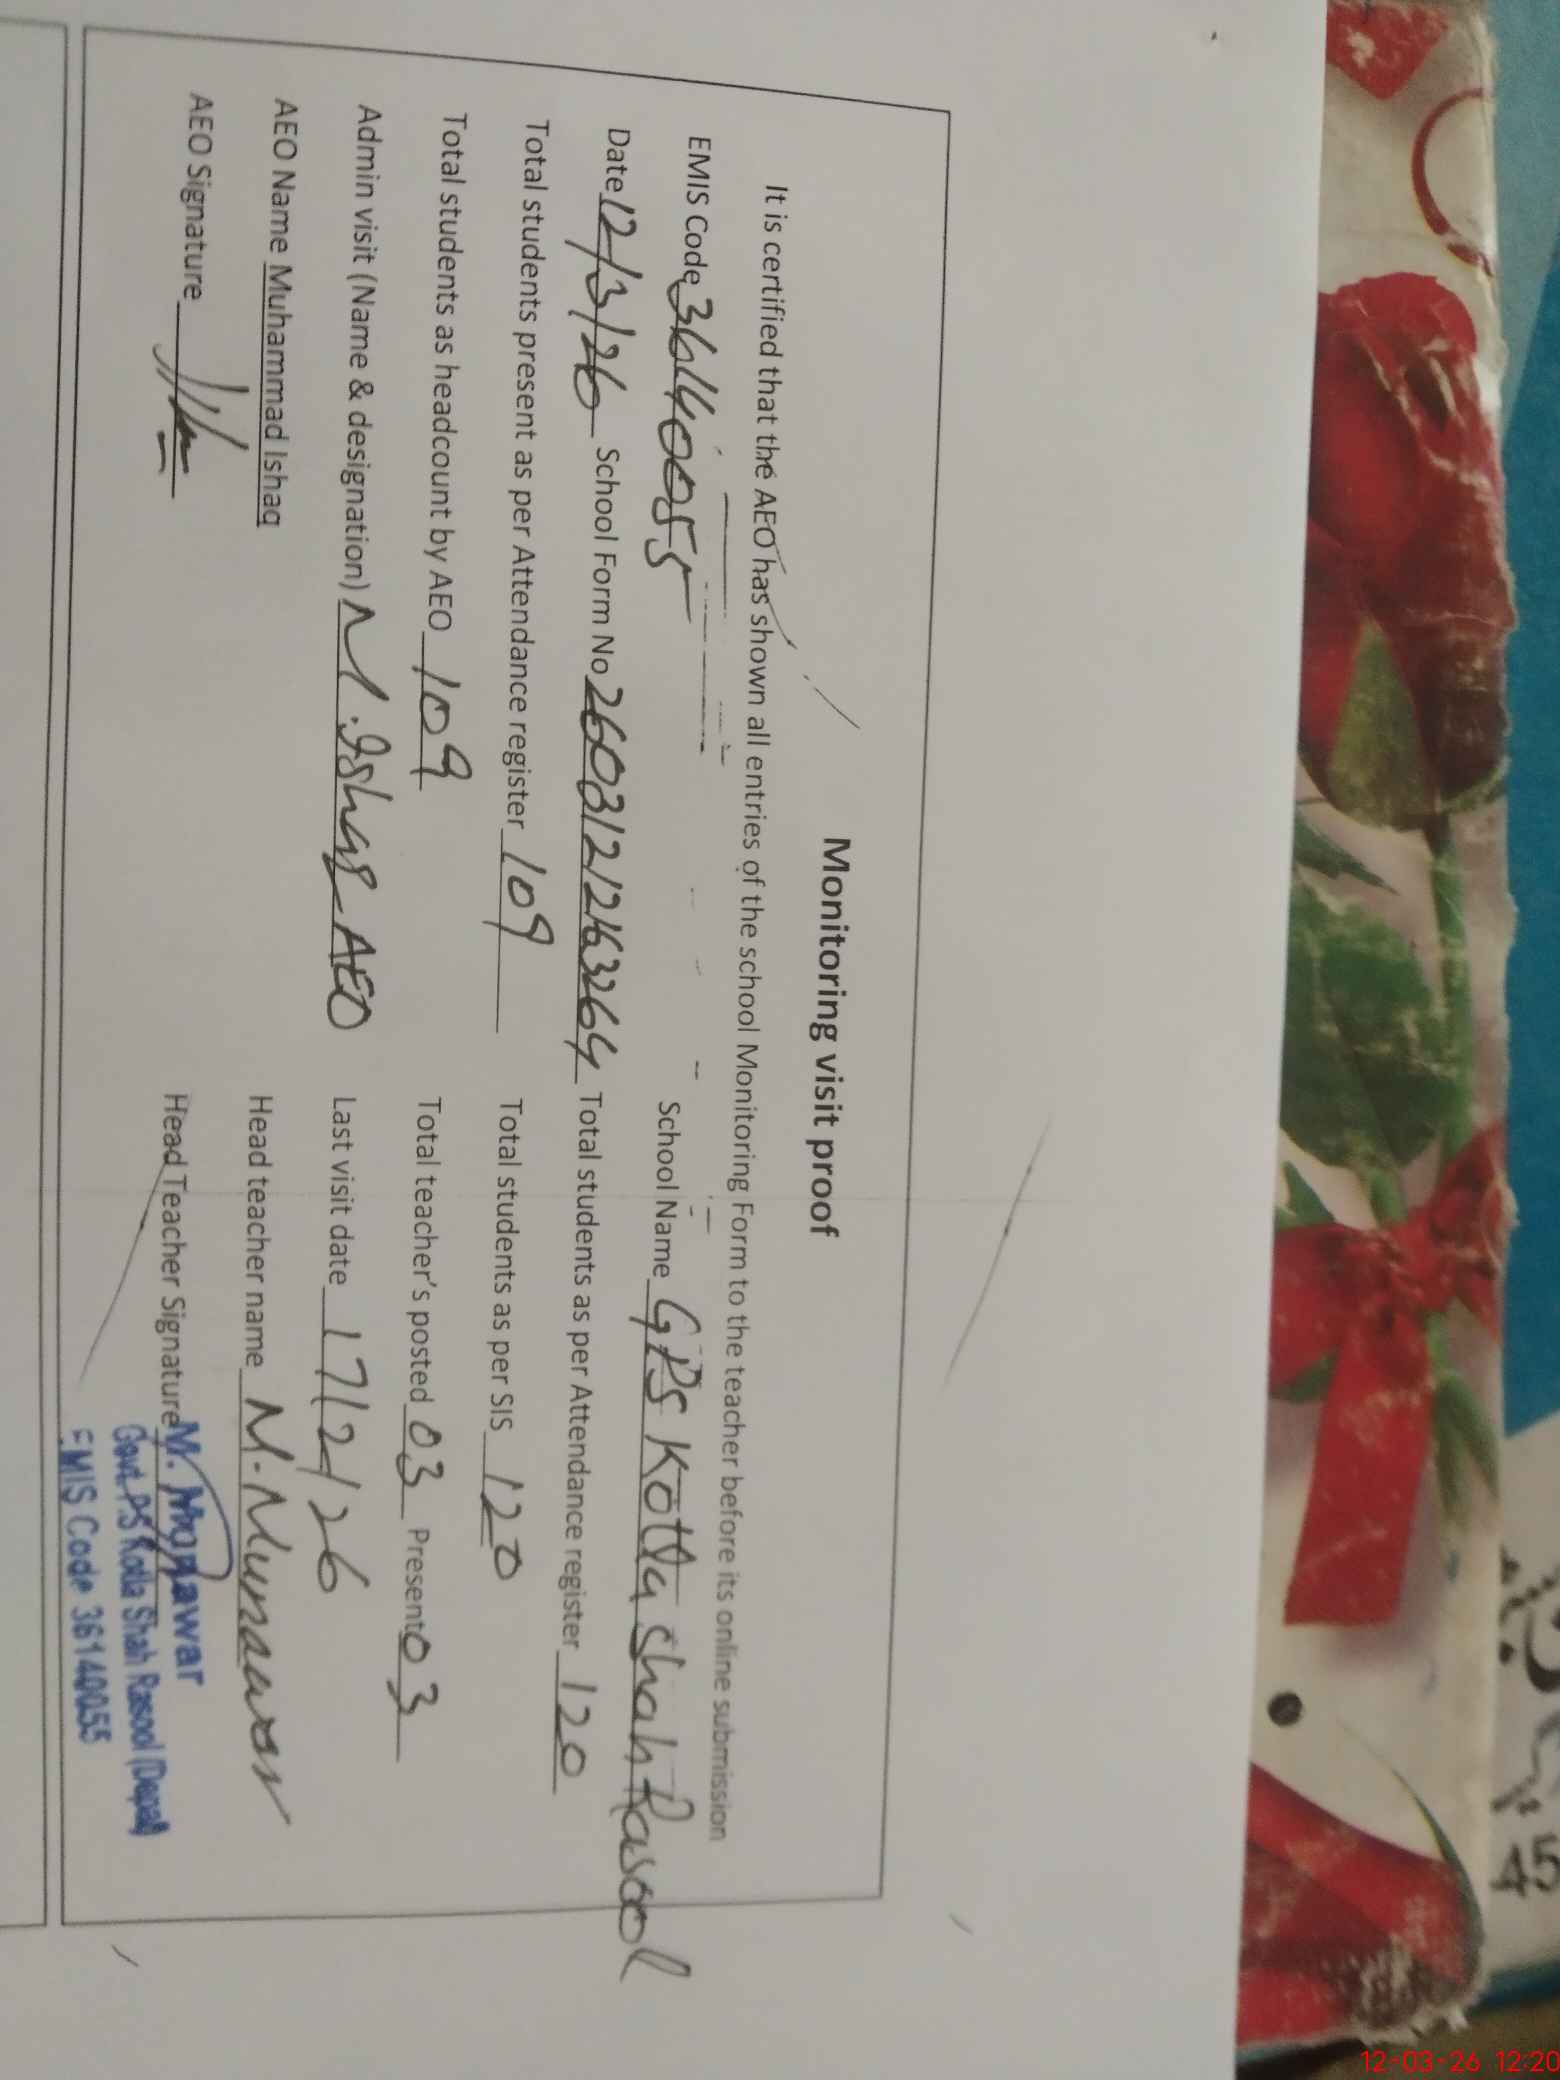 Monitoring visit proof
It is certified that the AEO has shown all entries of the school Monitoring Form to the teacher before its online submission
EMIS Code 36140055 School Name GPS Kotla Shah Rasool
Date 12/3/26 School Form No 26031212163264 Total students as per Attendance register 120
Total students present as per Attendance register 109 Total students as per SIS 120
Total students as headcount by AEO 109 Total teacher's posted 03 Present 03
Admin visit (Name & designation) M. Ishaq AEO Last visit date 17/2/26
AEO Name Muhammad Ishaq Head teacher name M. Munawar
AEO Signature Head Teacher Signature
M. Munawar
Govt. P.S Kotla Shah Rasool (Depal)
EMIS Code 36140055
45
12-03-26 12:20